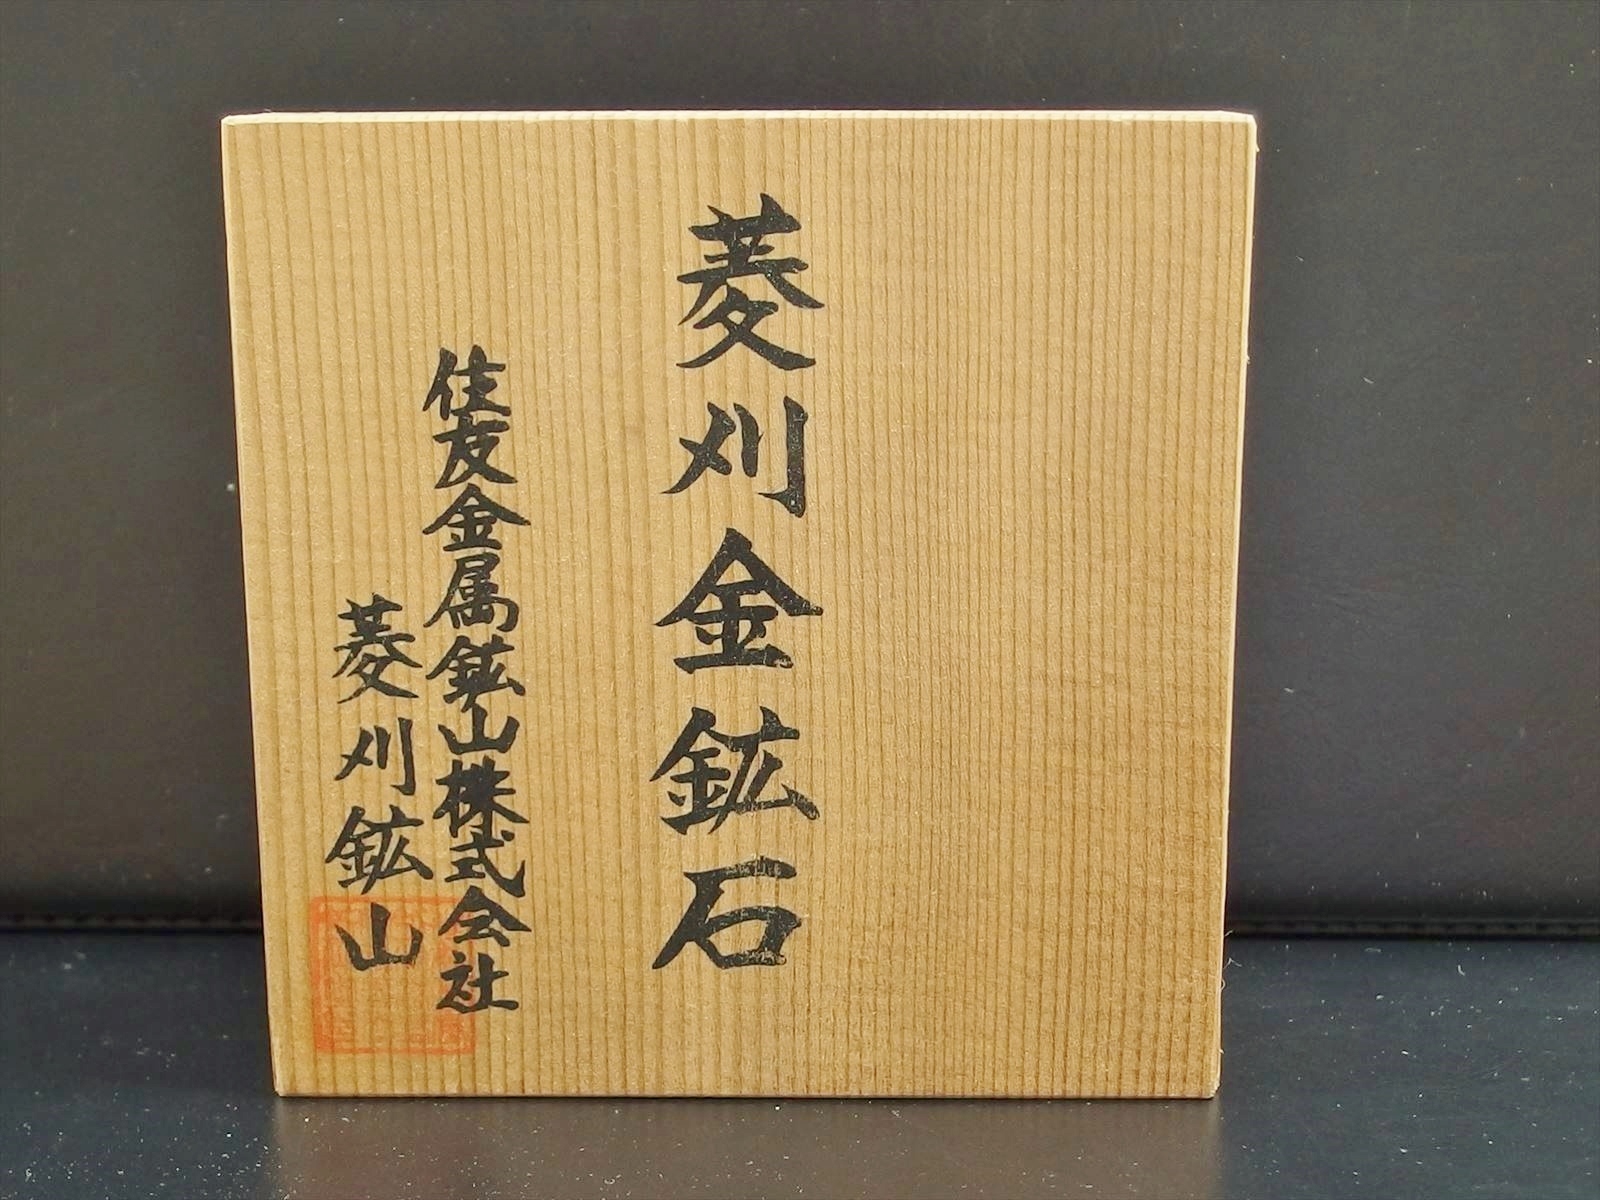 菱刈金鉱石
住友金属鉱山株式会社
菱刈鉱山